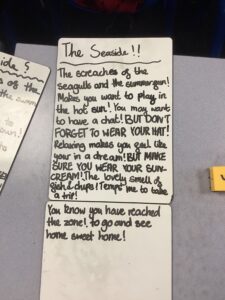 The Seaside!!
The screaches of the
seagulls and the summer sun!
Makes you want to play in
the hot sun! You may want
to have a chat! BUT DON'T
FORGET TO WEAR YOUR HAT!
Relaxing makes you feel like
your in a dream! BUT MAKE
SURE YOU WEAR YOUR SUN-
CREAM! The lovely smell of
fish & chips! Tempt me to take
a trip!
You know you have reached
the zone!, to go and see
home sweet home!